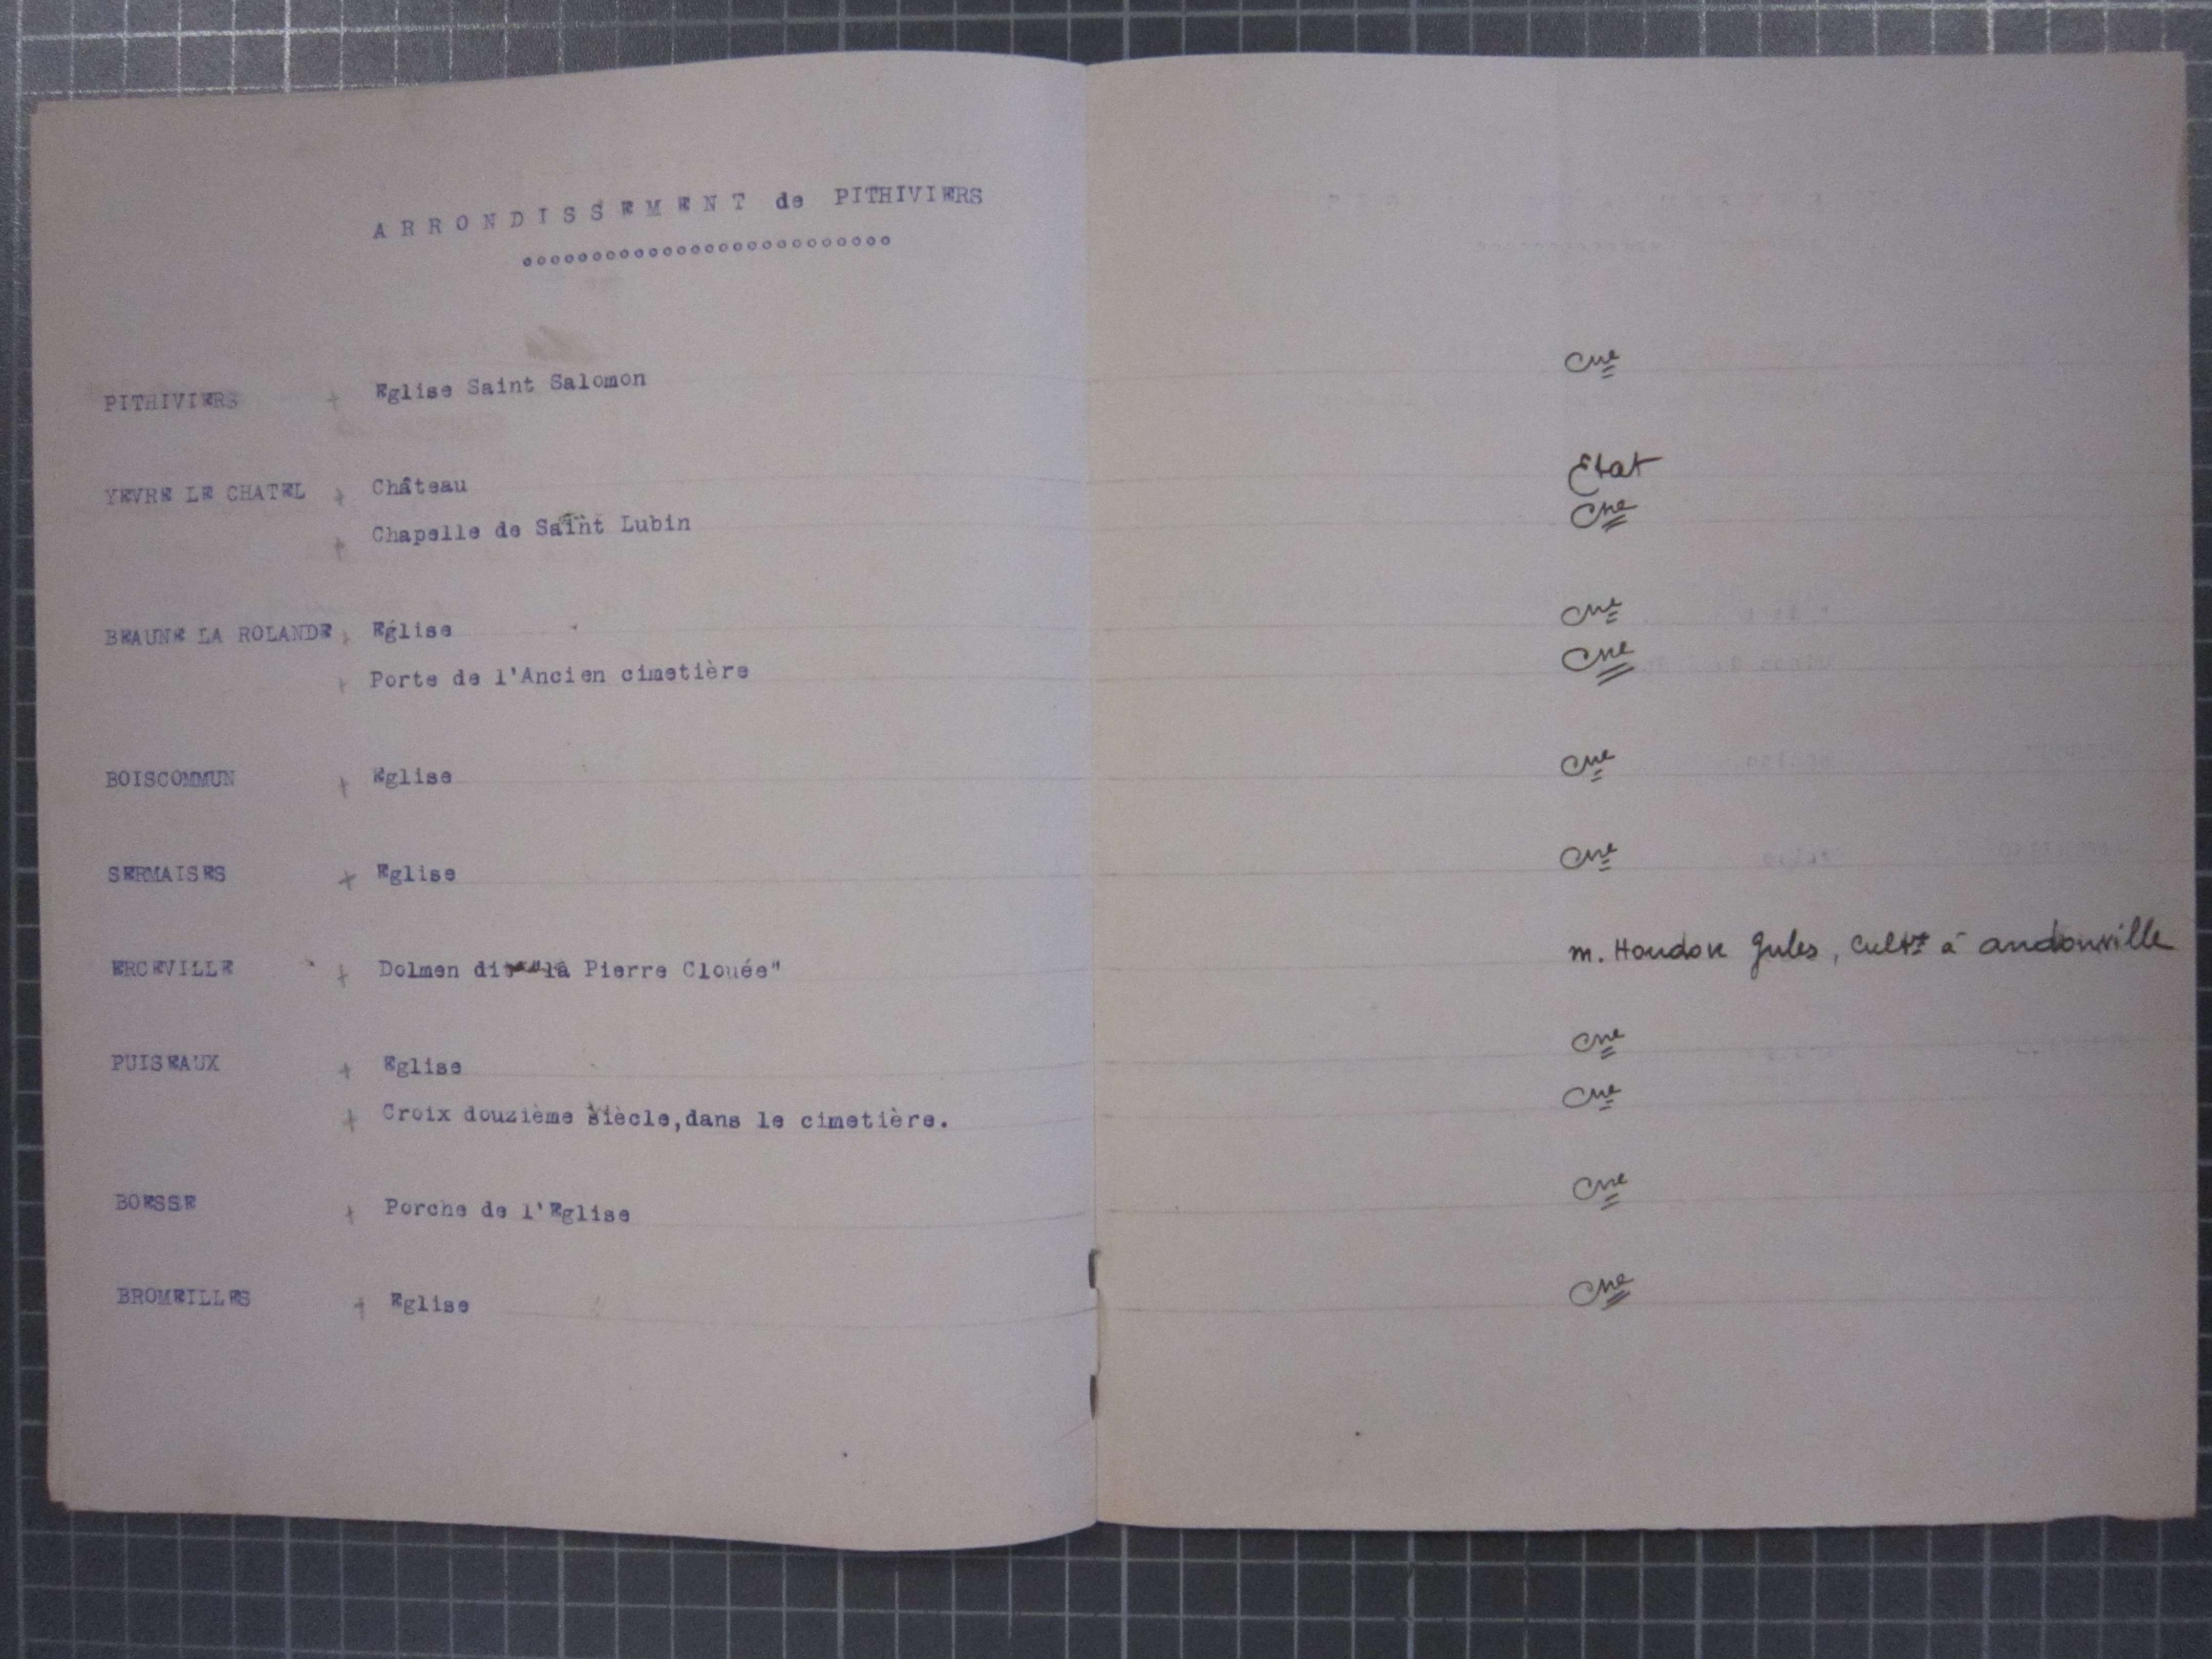 ARRONDISSEMENT de PITHIVIERS
°°°°°°°°°°°°°°°°°°°°°°°°°°
PITHIVIERS + Eglise Saint Salomon Cne
YEVRE LE CHATEL + Château Etat
+ Chapelle de Saint Lubin Cne
BEAUNE LA ROLANDE + Eglise Cne
+ Porte de l'Ancien cimetière Cne
BOISCOMMUN + Eglise Cne
SERMAISES + Eglise Cne
ERCEVILLE + Dolmen dit "la Pierre Clouée" M. Houdon Jules, cultvt à andonville
PUISEAUX + Eglise Cne
+ Croix douzième siècle,dans le cimetière. Cne
BOESSE + Porche de l'Eglise Cne
BROMEILLES + Eglise Cne